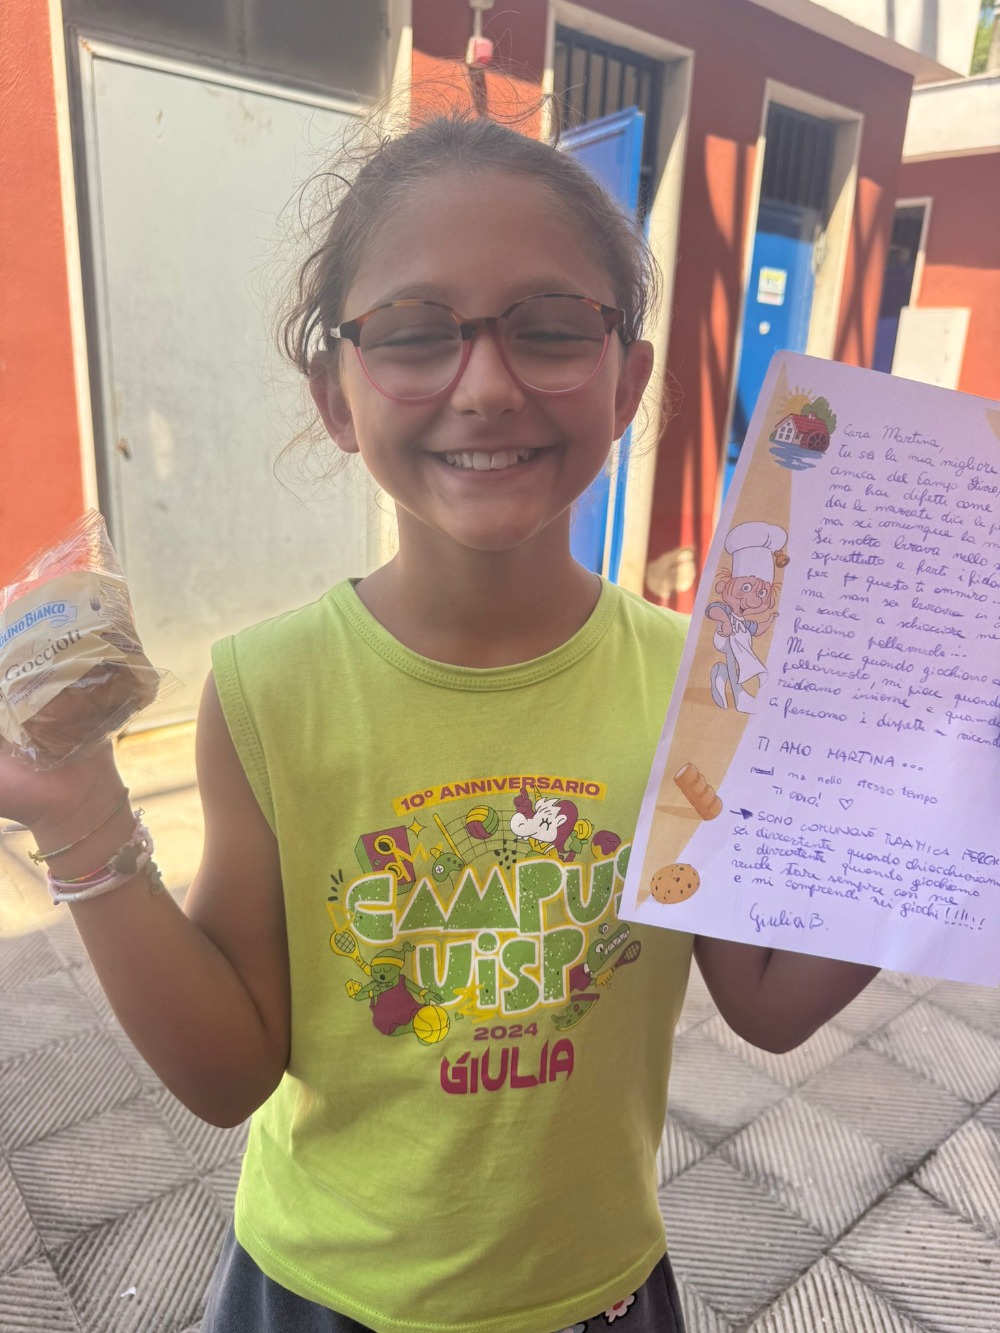 LINO BIANCO
Goccioli
10° ANNIVERSARIO
CAMPUS
UISP
2024
GIULIA
Cara Martina,
tu sei la mia migliore
amica del Campo
ma hai difetti come
dai le mazzate dici le
ma sei comunque la
Sei molto brava nello
soprattutto a farti i
per questo ti ammiro
ma non sei brava in
a scuola a schiacciare
facciamo pallavolo...
Mi piace quando giochiamo a
pallavolo, mi piace quando
ridiamo insieme e quando
ci facciamo i dispetti a vicenda
TI AMO MARTINA...
ma nello stesso tempo
Ti odio! ♡
SONO COMUNQUE TUA AMICA PERCHÈ
sei divertente quando chiacchieriamo
e divertente quando giochiamo
vuole stare sempre con me
e mi comprendi nei giochi!!!!!
Giulia B.